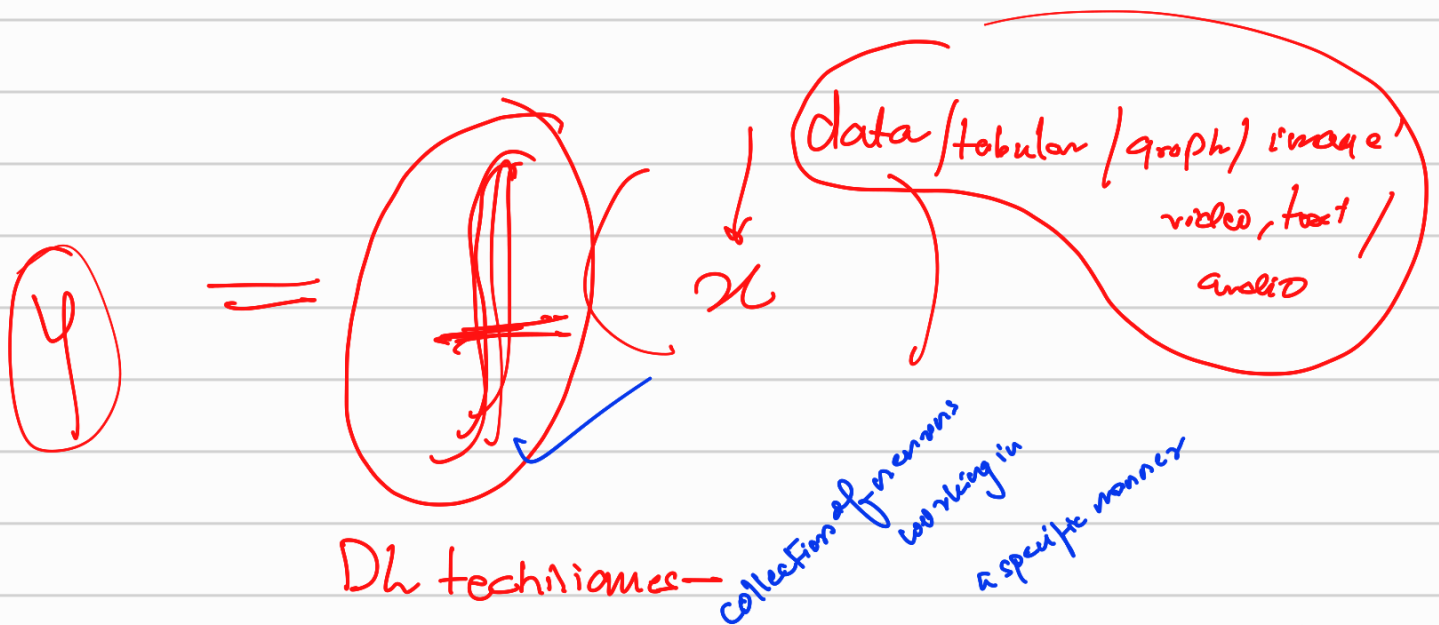 data / tabular / graph / image
video, text /
audio
y = f ( x )
DL techniques —
collection of neurons
working in
a specific manner